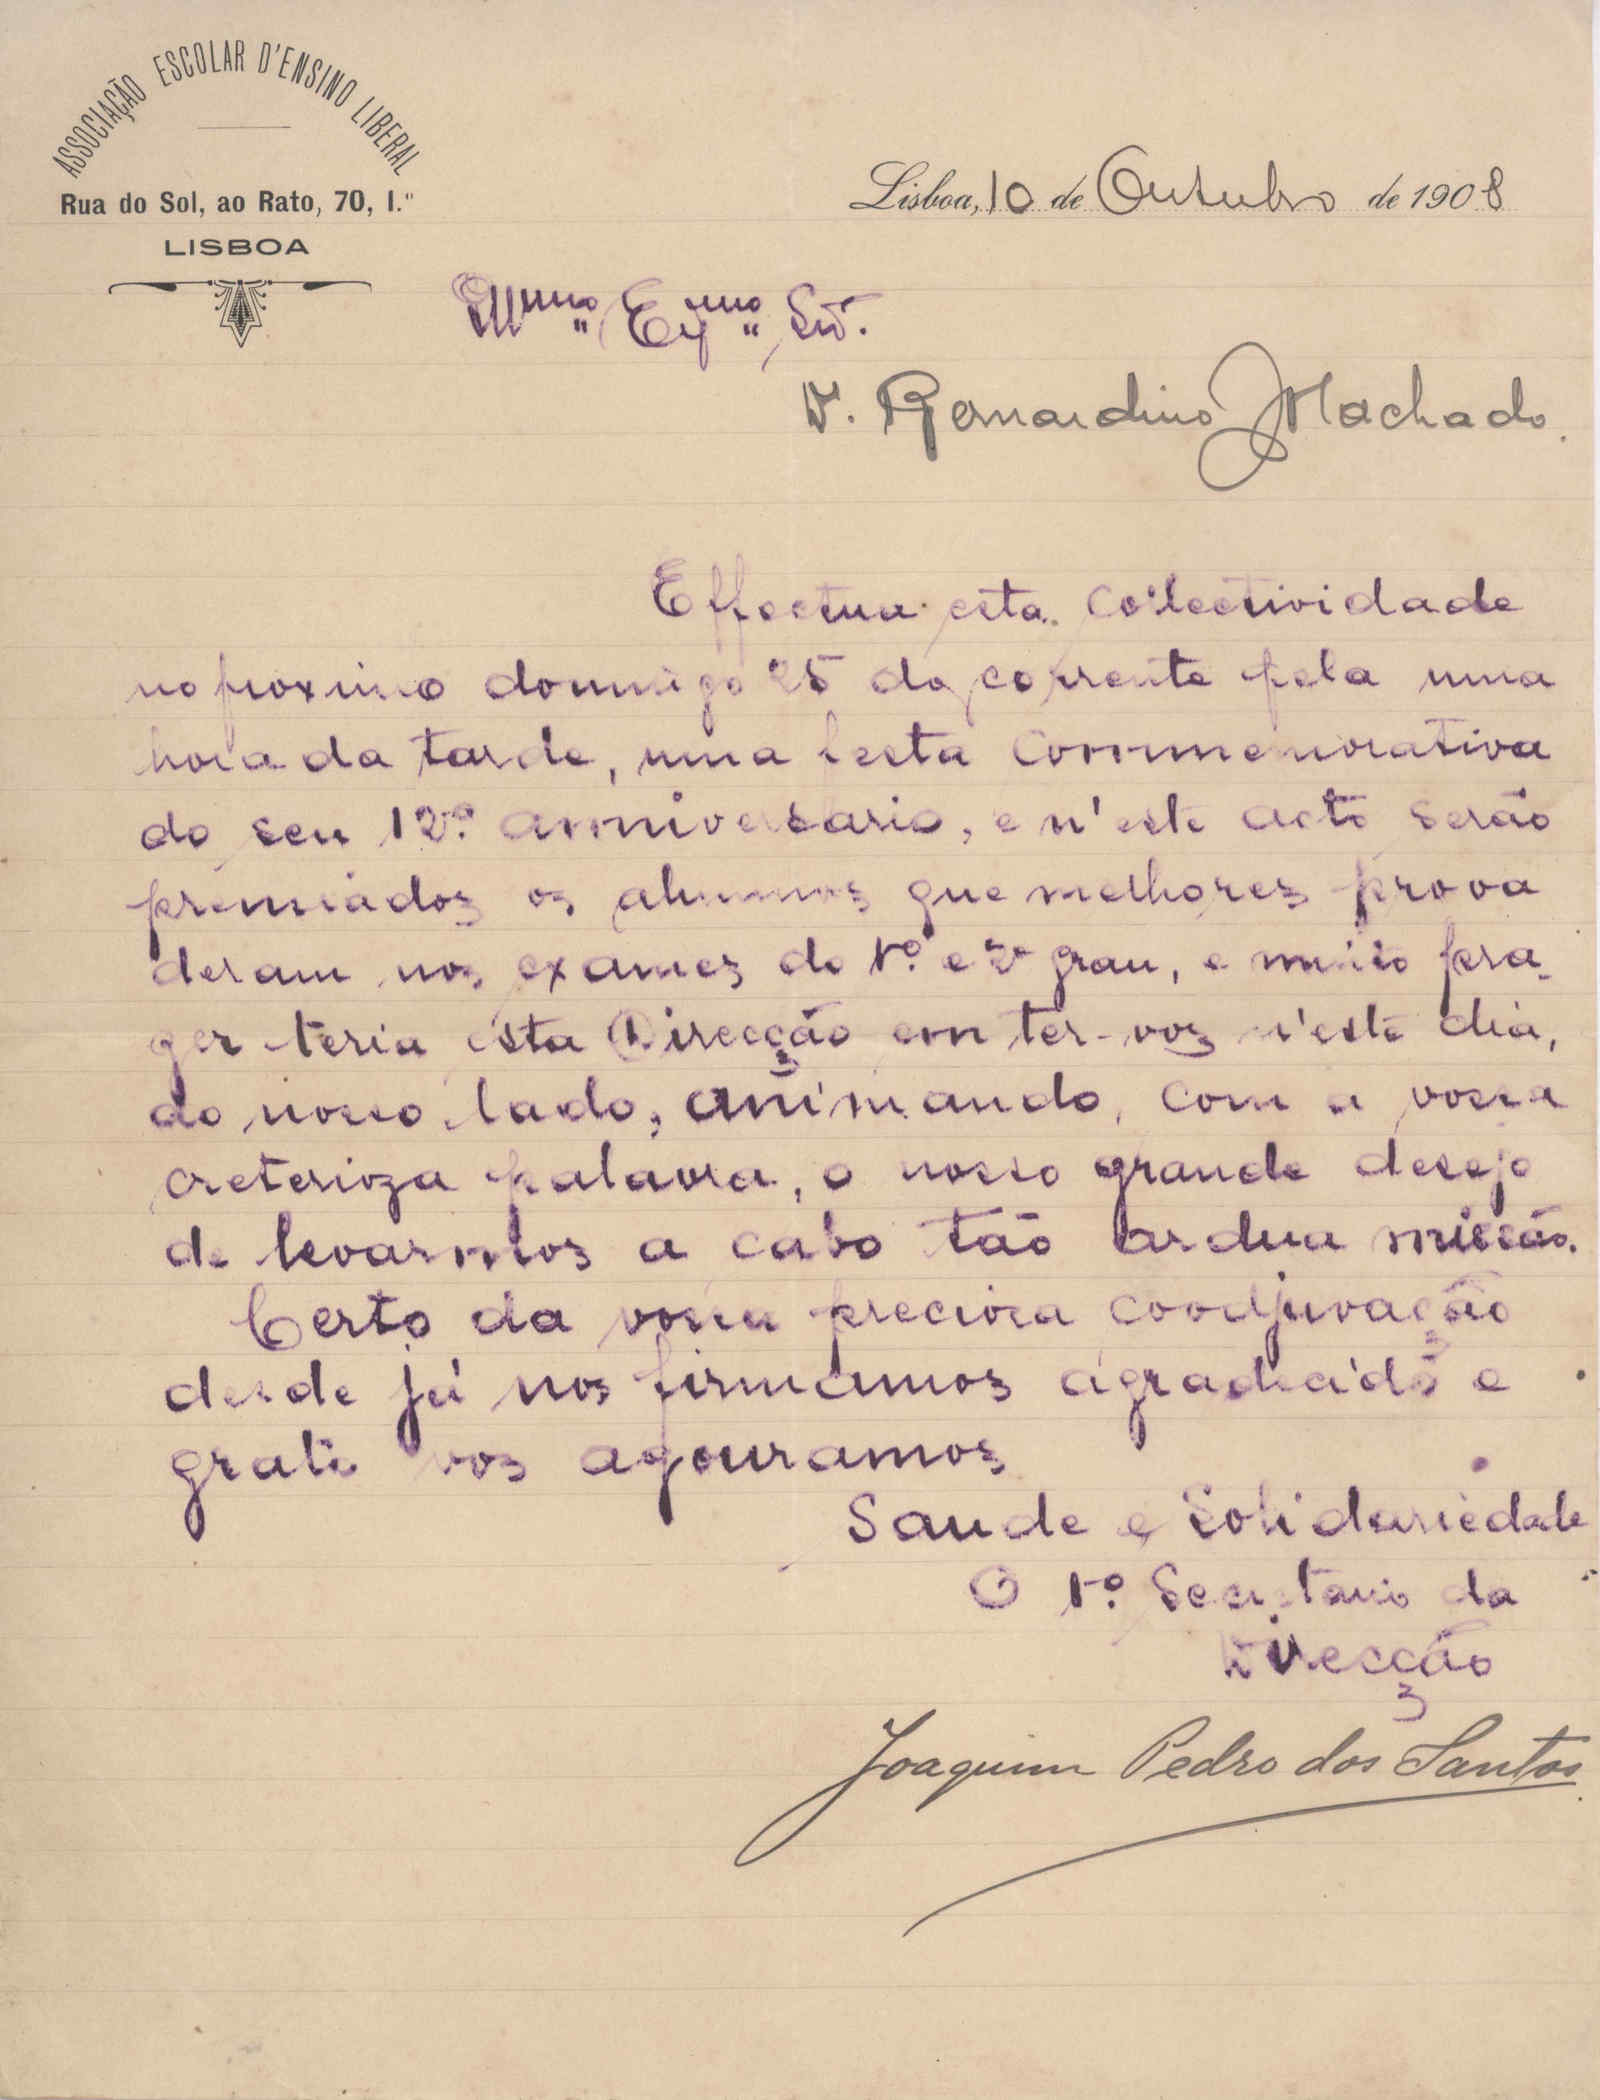 ASSOCIAÇÃO ESCOLAR D'ENSINO LIBERAL
Rua do Sol, ao Rato, 70, 1.º
LISBOA
Lisboa, 10 de Outubro de 1908
Illmo Exmo Snr.
Dr. Bernardino Machado.
Effectua esta collectividade
no proximo domingo 25 do corrente pela uma
hora da tarde, uma festa commemorativa
do seu 12º anniversario, e n'este acto serão
premiados os alumnos que melhores prova
deram nos exames do 1º e 2º grau, e muito pra-
zer teria esta Direcção em ter-vos n'este dia,
ao nosso lado, animando, com a vossa
creterioza palavra, o nosso grande desejo
de levarmos a cabo tão ardua missão.
Certo da vossa preciosa coodjuvação
desde já nos firmamos agradecido e
grato vos agouramos
Saude e Solidariedade
O 1º Secretario da
Direcção
Joaquim Pedro dos Santos.